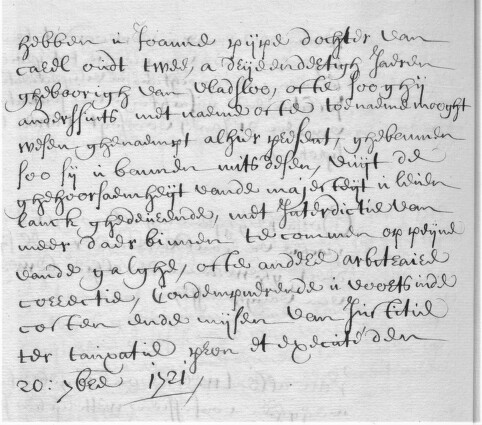 hebben u Joanne pijpe dochter van
Carel oudt twee, a drijendertigh Jaeren
gheboorigh van vladsloo, ofte soo ghij
anderssints met naeme ofte toenaeme mooght
wesen ghenaempt alhier present, ghebannen
soo sij u bannen mits desen, vuijt de
ghehoorsaemheijt vande majesteijt u leven
lanck ghedeurende, met Interdictie van
meer daer binnen te commen op peijne
vande galghe, ofte andere arbitraire
correctie, Condempnerende u voorts inde
costen ende mijsen van Justitie
ter tauxatie pron et executé den
20: 7bre 1721